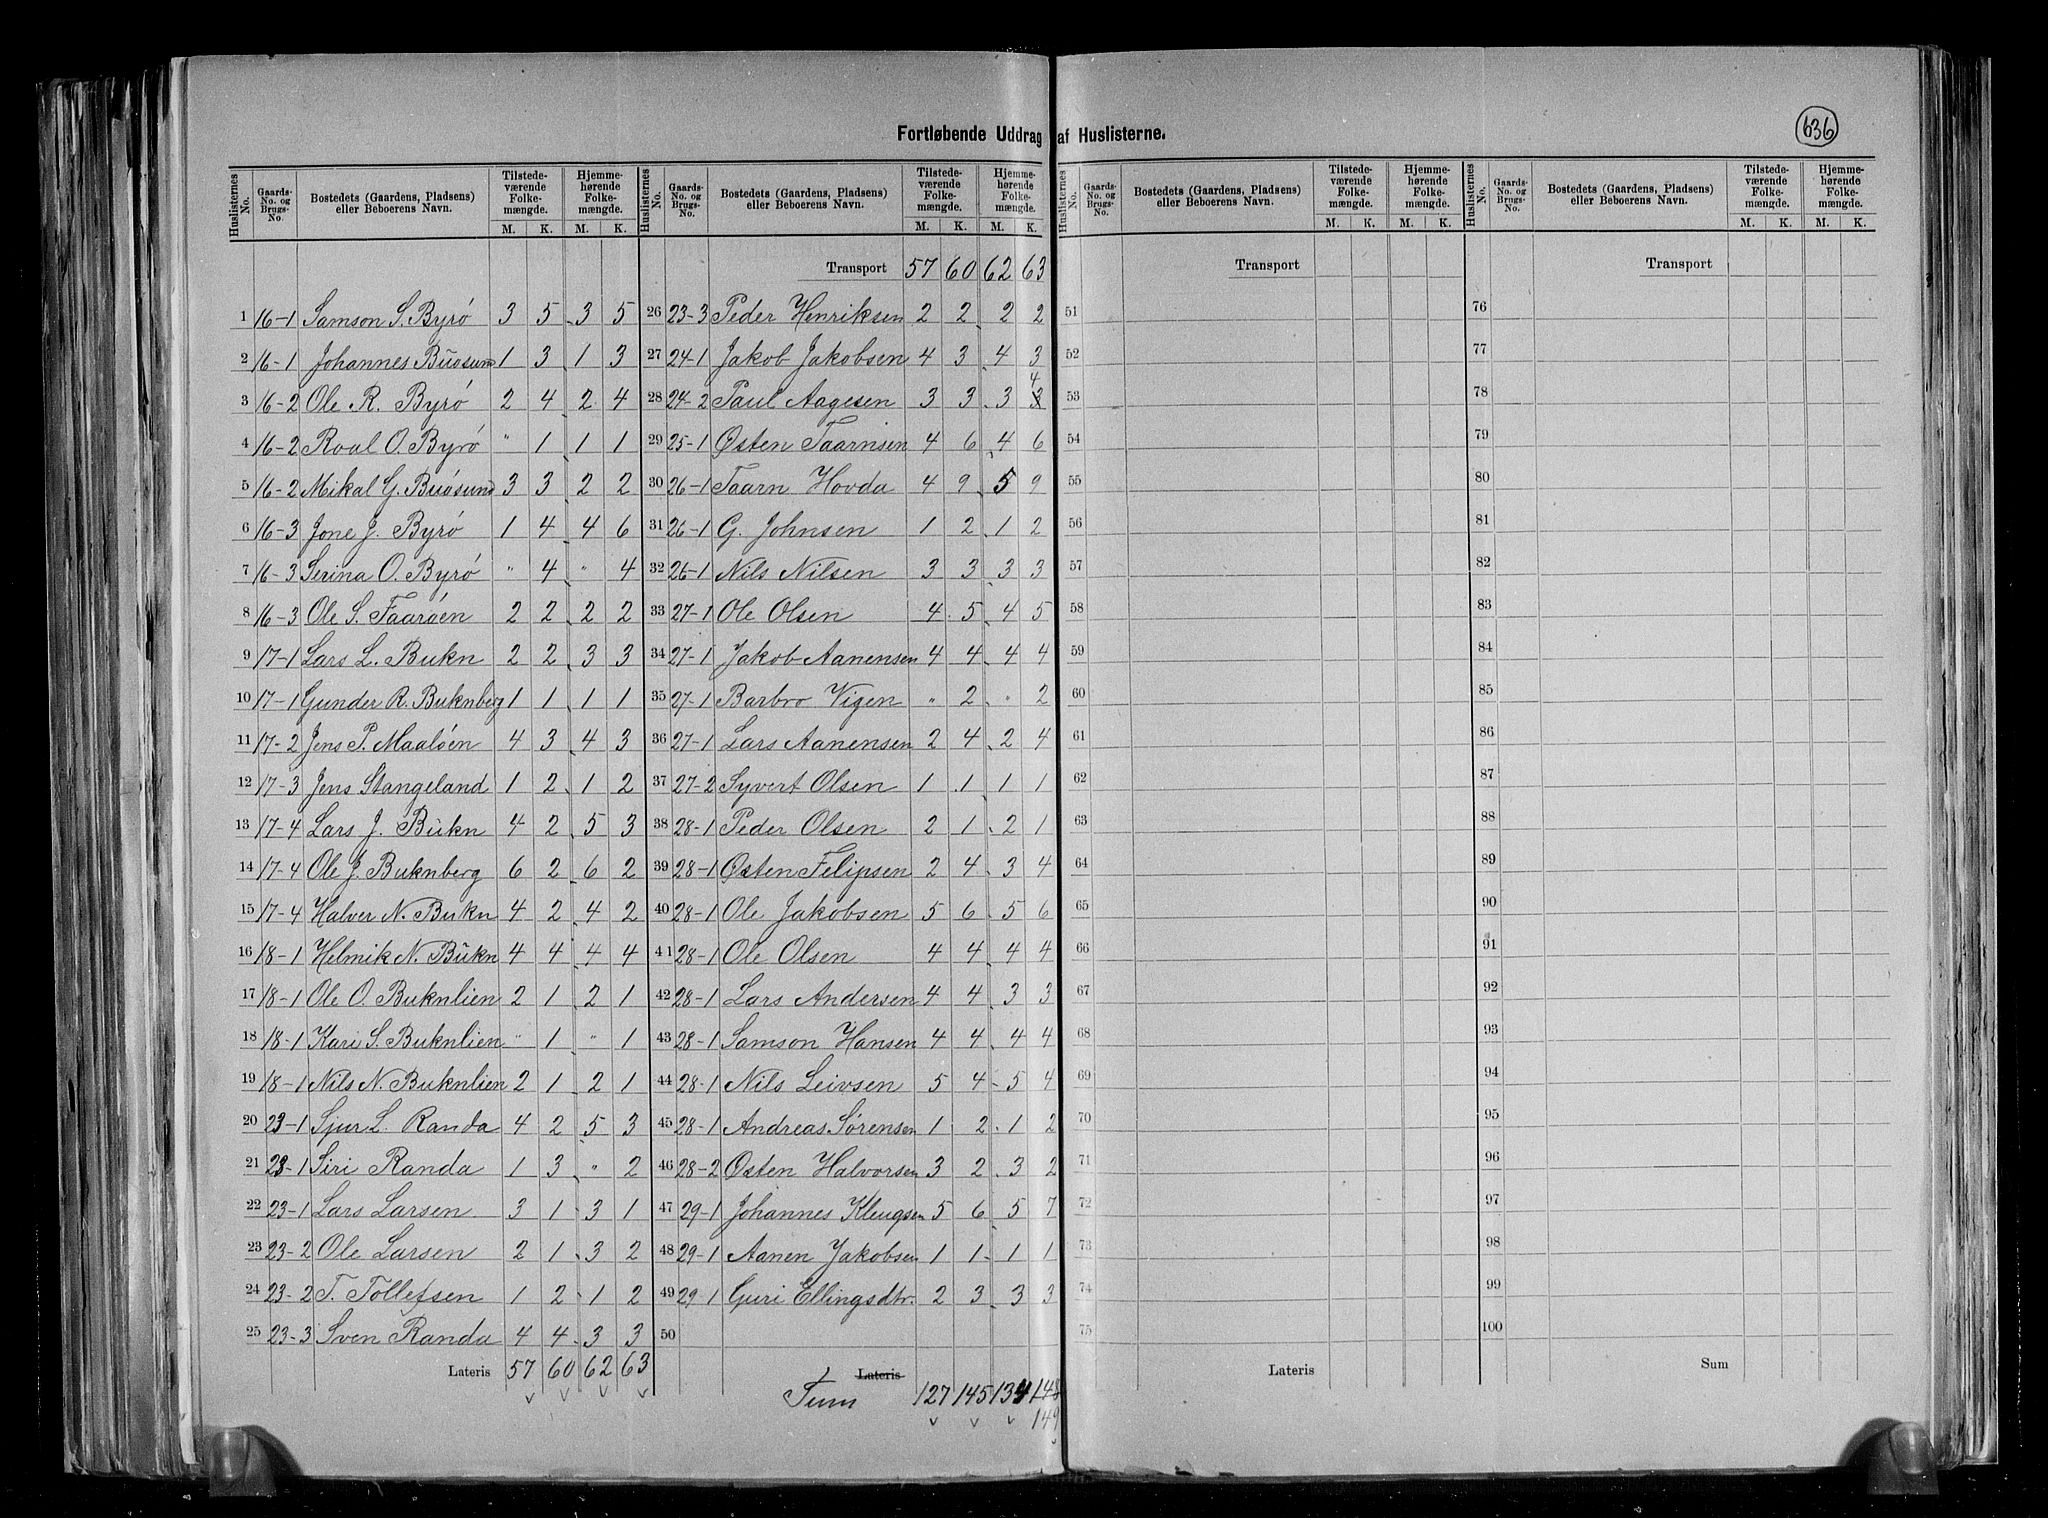 Fortløbende Uddrag af Huslisterne.
636
Huslisternes No. Gaards-No. og Brugs-No. Bostedets (Gaardens, Pladsens) eller Beboerens Navn. Tilstedeværende Folkemængde. M. K. Hjemmehørende Folkemængde. M. K.
1 16-1 Samson S. Byrø 3 5 3 5
2 16-1 Johannes Buøsund 1 3 1 3
3 16-2 Ole R. Byrø 2 4 2 4
4 16-2 Roal O. Byrø " 1 1 1
5 16-2 Mikal G. Buøsund 3 3 2 2
6 16-3 Jone J. Byrø 1 4 4 6
7 16-3 Serina O. Byrø " 4 " 4
8 16-3 Ole S. Faarøen 2 2 2 2
9 17-1 Lars L. Bukn 2 2 3 3
10 17-1 Gunder R. Buknberg 1 1 1 1
11 17-2 Jens P. Maaløen 4 3 4 3
12 17-3 Jens Stangeland 1 2 1 2
13 17-4 Lars J. Bukn 4 2 5 3
14 17-4 Ole J. Buknberg 6 2 6 2
15 17-4 Halver N. Bukn 4 2 4 2
16 18-1 Helmik N. Bukn 4 4 4 4
17 18-1 Ole O. Buknlien 2 1 2 1
18 18-1 Kari S. Buknlien " 1 " 1
19 18-1 Nils N. Buknlien 2 1 2 1
20 23-1 Sjur L. Randa 4 2 5 3
21 23-1 Siri Randa 1 3 " 2
22 23-1 Lars Larsen 3 1 3 1
23 23-2 Ole Larsen 2 1 3 2
24 23-2 T. Tollefsen 1 2 1 2
25 23-3 Sven Randa 4 4 3 3
Lateris 57 60 62 63
Huslisternes No. Gaards-No. og Brugs-No. Bostedets (Gaardens, Pladsens) eller Beboerens Navn. Tilstedeværende Folkemængde. M. K. Hjemmehørende Folkemængde. M. K.
Transport 57 60 62 63
26 23-3 Peder Henriksen 2 2 2 2
27 24-1 Jakob Jakobsen 4 3 4 3
28 24-2 Paul Aagesen 3 3 3 3 4
29 25-1 Østen Taarnsen 4 6 4 6
30 26-1 Taarn Hovda 4 9 5 9
31 26-1 G. Johnsen 1 2 1 2
32 26-1 Nils Nilsen 3 3 3 3
33 27-1 Ole Olsen 4 5 4 5
34 27-1 Jakob Aanensen 4 4 4 4
35 27-1 Barbro Vigen " 2 " 2
36 27-1 Lars Aanensen 2 4 2 4
37 27-2 Syvert Olsen 1 1 1 1
38 28-1 Peder Olsen 2 1 2 1
39 28-1 Østen Felipsen 2 4 3 4
40 28-1 Ole Jakobsen 5 6 5 6
41 28-1 Ole Olsen 4 4 4 4
42 28-1 Lars Andersen 4 4 3 3
43 28-1 Samson Hansen 4 4 4 4
44 28-1 Nils Leivsen 5 4 5 4
45 28-1 Andreas Sørensen 1 2 1 2
46 28-2 Østen Halvorsen 3 2 3 2
47 29-1 Johannes Kleugsen 5 6 5 7
48 29-1 Aanen Jakobsen 1 1 1 1
49 29-1 Guri Ellingsdtr. 2 3 3 3
50
Lateris
Sum 127 145 134 148
149
Huslisternes No. Gaards-No. og Brugs-No. Bostedets (Gaardens, Pladsens) eller Beboerens Navn. Tilstedeværende Folkemængde. M. K. Hjemmehørende Folkemængde. M. K.
Transport
51
52
53
54
55
56
57
58
59
60
61
62
63
64
65
66
67
68
69
70
71
72
73
74
75
Lateris
Huslisternes No. Gaards-No. og Brugs-No. Bostedets (Gaardens, Pladsens) eller Beboerens Navn. Tilstedeværende Folkemængde. M. K. Hjemmehørende Folkemængde. M. K.
Transport
76
77
78
79
80
81
82
83
84
85
86
87
88
89
90
91
92
93
94
95
96
97
98
99
100
Sum